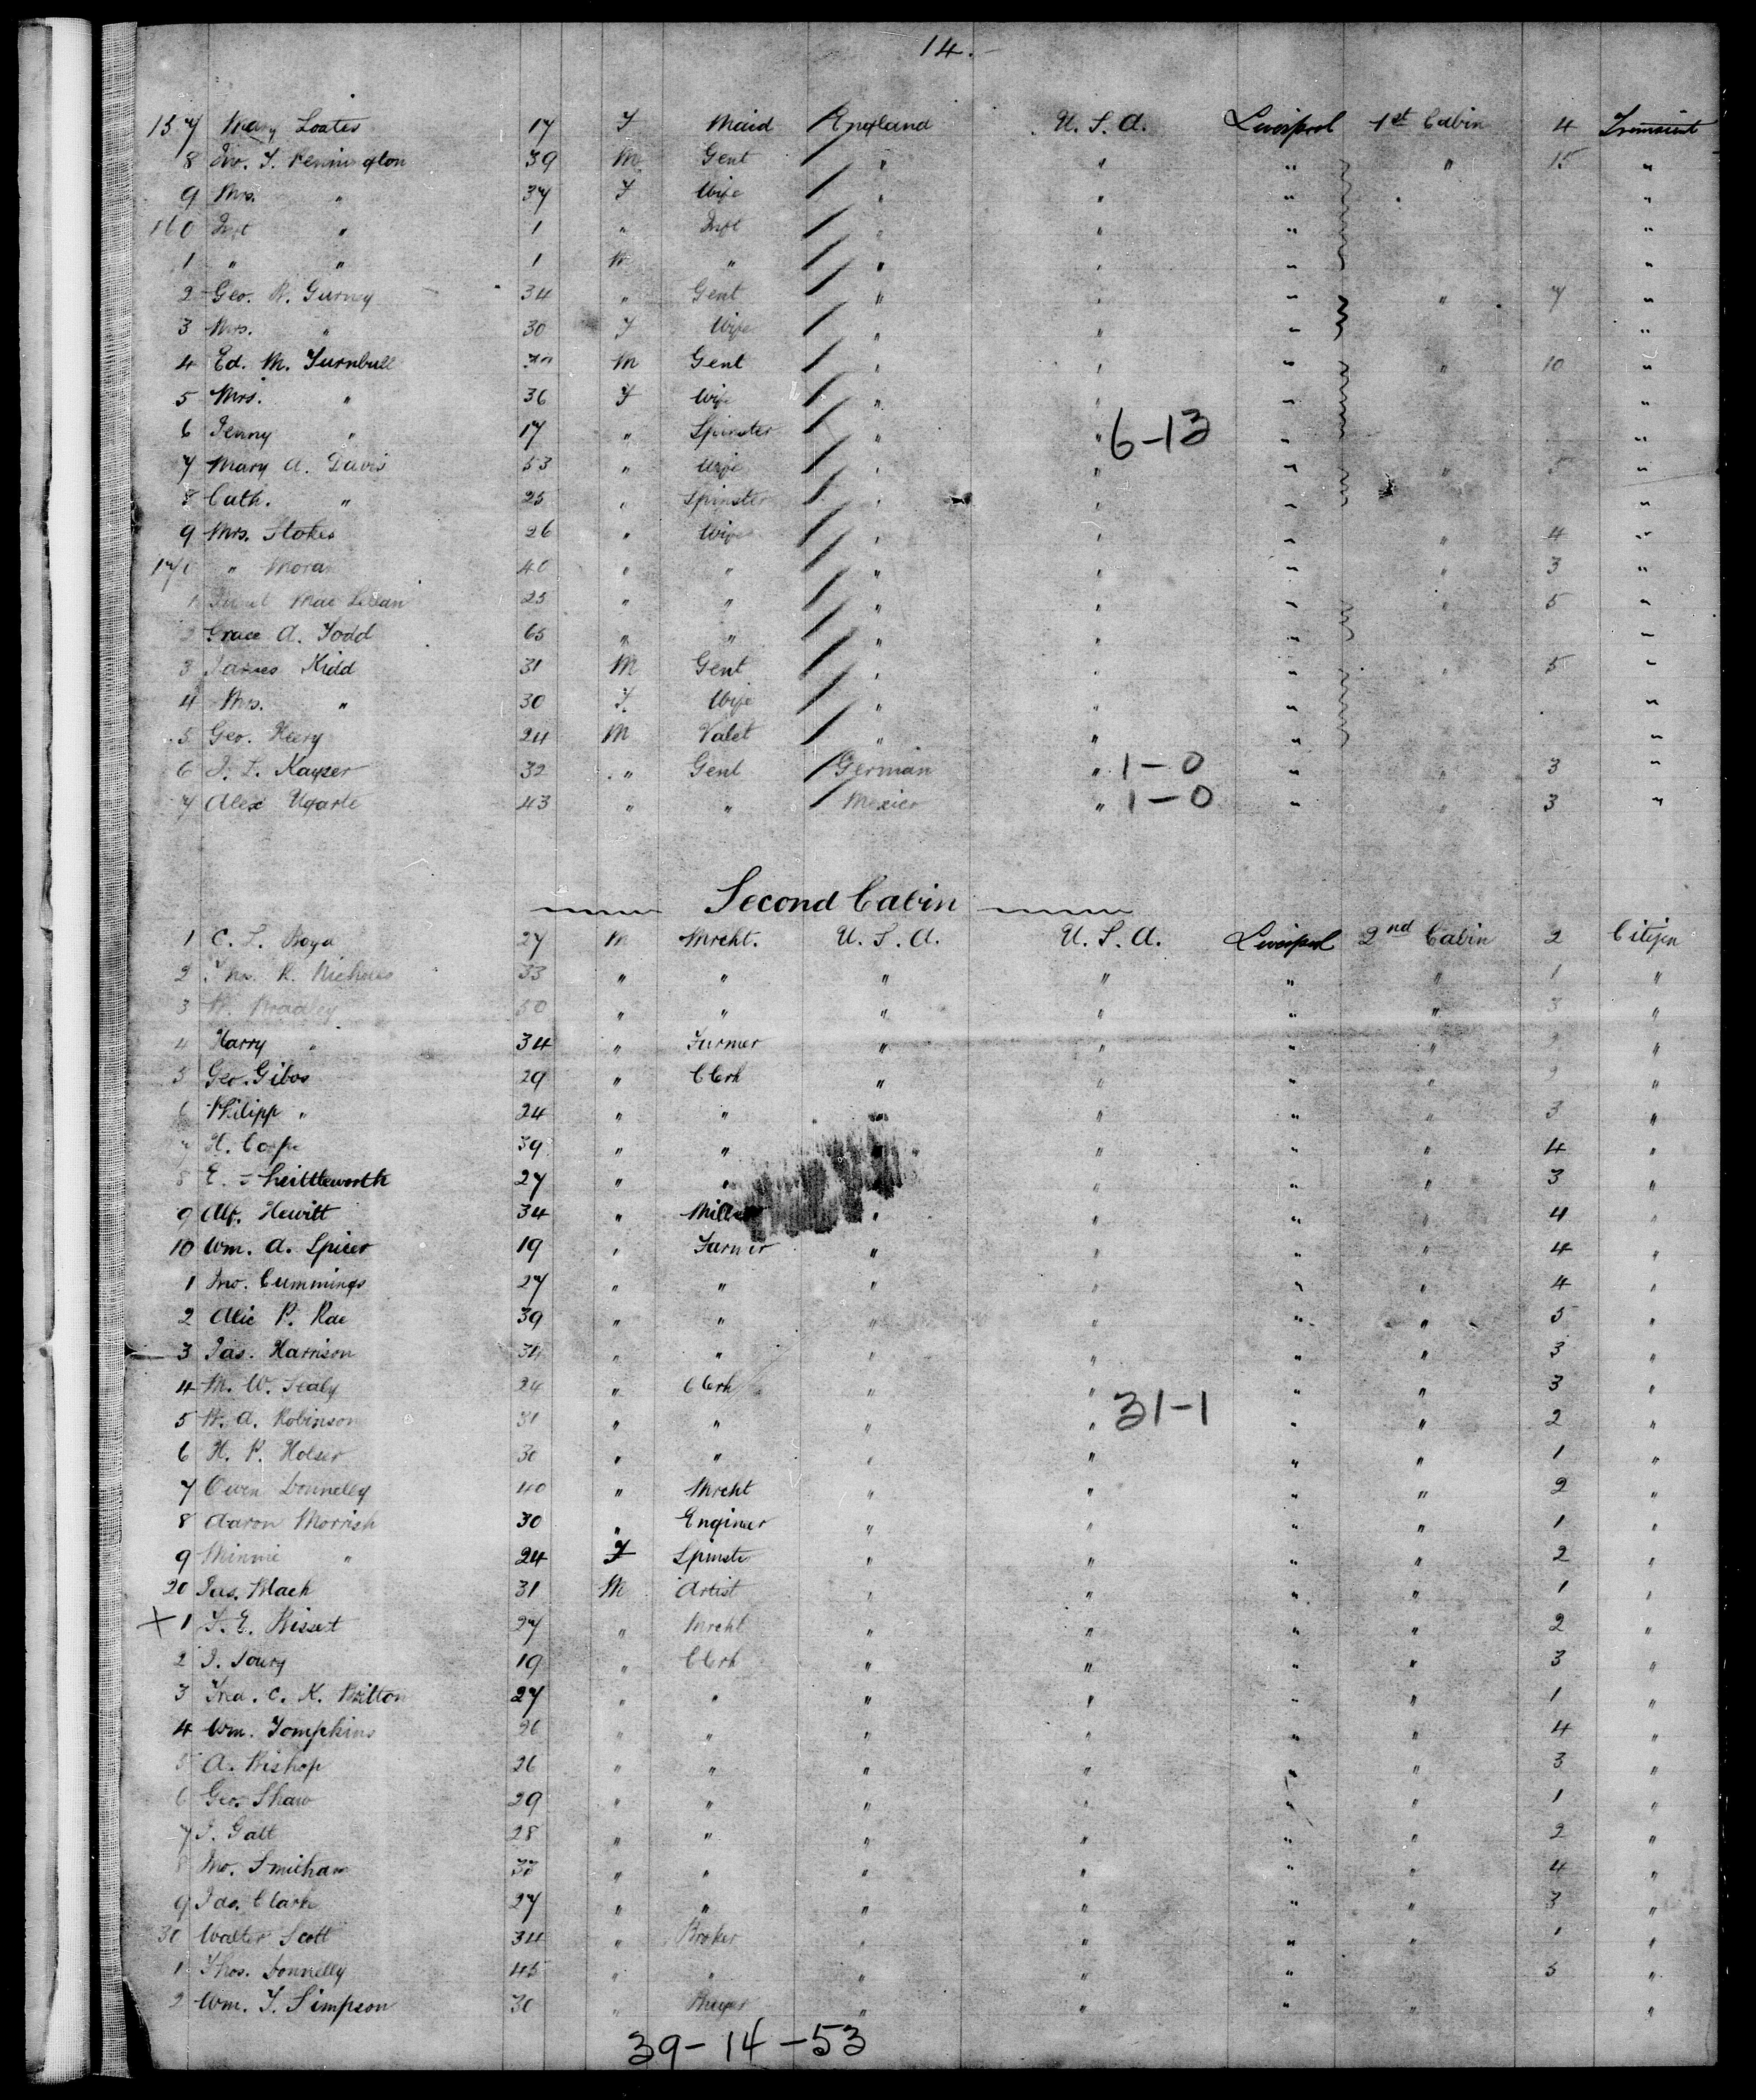 14.
157 Mary Loates 17 F Maid England U.S.A. Liverpool 1st Cabin 4 Transient
8 Jno. T. Pennington 39 M Gent " " " " 15 "
9 Mrs. " 37 F Wife " " " " "
160 Inft " 1 " Inft " " " "
1 " " 1 M " " " " "
2 Geo. R. Gurney 34 " Gent " " " " 7 "
3 Mrs. " 30 F Wife " " " "
4 Ed. M. Turnbull M Gent " " " " 10 "
5 Mrs. " 36 F Wife " " " "
6 Jenny " 17 " Spinster " " 6-13 " "
7 Mary A. Davis 53 " Wife " " " " 5 "
8 Cath. " 25 " Spinster " " " "
9 Mrs. Stokes 26 " Wife " " " " 4 "
170 " Moran 40 " " " " " " 3 "
1 Mac Lellan 25 " " " " " " 5 "
2 Grace A. Todd 65 " " " " " "
3 James Kidd 31 M Gent " " " " 5 "
4 Mrs. " 30 F. Wife " " " "
5 Geo. Heery 24 M Valet " " " "
6 J. L. Kayser 32 " Gent German " 1-0 " " 3 "
7 Alex Ugarte 43 " " Mexico " 1-0 " " 3 "
Second Cabin
1 C. L. Boyd 27 M Mrcht. U.S.A. U.S.A. Liverpool 2nd Cabin 2 Citizen
2 Thos. R. 33 " " " " " " 1 "
3 Bradley 50 " " " " " " 3 "
4 Harry " 34 " Farmer " " " " "
5 Geo. Gibbs 29 " Clerk " " " " "
6 Philipp " 24 " " " " " " 3 "
7 H. Cope 39 " " " " " " 4 "
8 E. Shuttleworth 27 " " " " " 3 "
9 Alf. Hewitt 34 " Miller " " " " 4 "
10 Wm. A. Spicer 19 " Farmer " " " " 4 "
1 Jno. Cummings 27 " " " " " " 4 "
2 Alic P. Rae 39 " " " " " " 5 "
3 Jas. Harrison 34 " " " " " " 3 "
4 M. W. Sealy 24 " Clerk " " " " 3 "
5 W. A. Robinson 31 " " " " 31-1 " " 2 "
6 H. P. Holser 30 " " " " " " 1 "
7 Owen Donnelly 40 " Mrcht " " " " 2 "
8 Aaron Morrish 30 " Engineer " " " " 1 "
9 Minnie " 24 F Spinster " " " " 2 "
20 Jas. Mack 31 M Artist " " " " 1 "
X 1 T. E. Bissett 27 " Mrcht " " " " 2 "
2 J. Toury 19 " Clerk " " " " 3 "
3 Fred. C. K. Bilton 27 " " " " " " 1 "
4 Wm. Tompkins 26 " " " " " " 4 "
5 A. Bishop 26 " " " " " " 3 "
6 Geo. Shaw 29 " " " " " " 1 "
7 J. Galt 28 " " " " " " 2 "
8 Jno. Smitham " " " " " " 4 "
9 Jas. Clark 27 " " " " " " 3 "
30 Walter Scott 34 " Broker " " " " 1 "
1 Thos. Donnelly 45 " " " " " 5 "
2 Wm. T. Simpson 30 " Buyer " " " " "
39-14-53